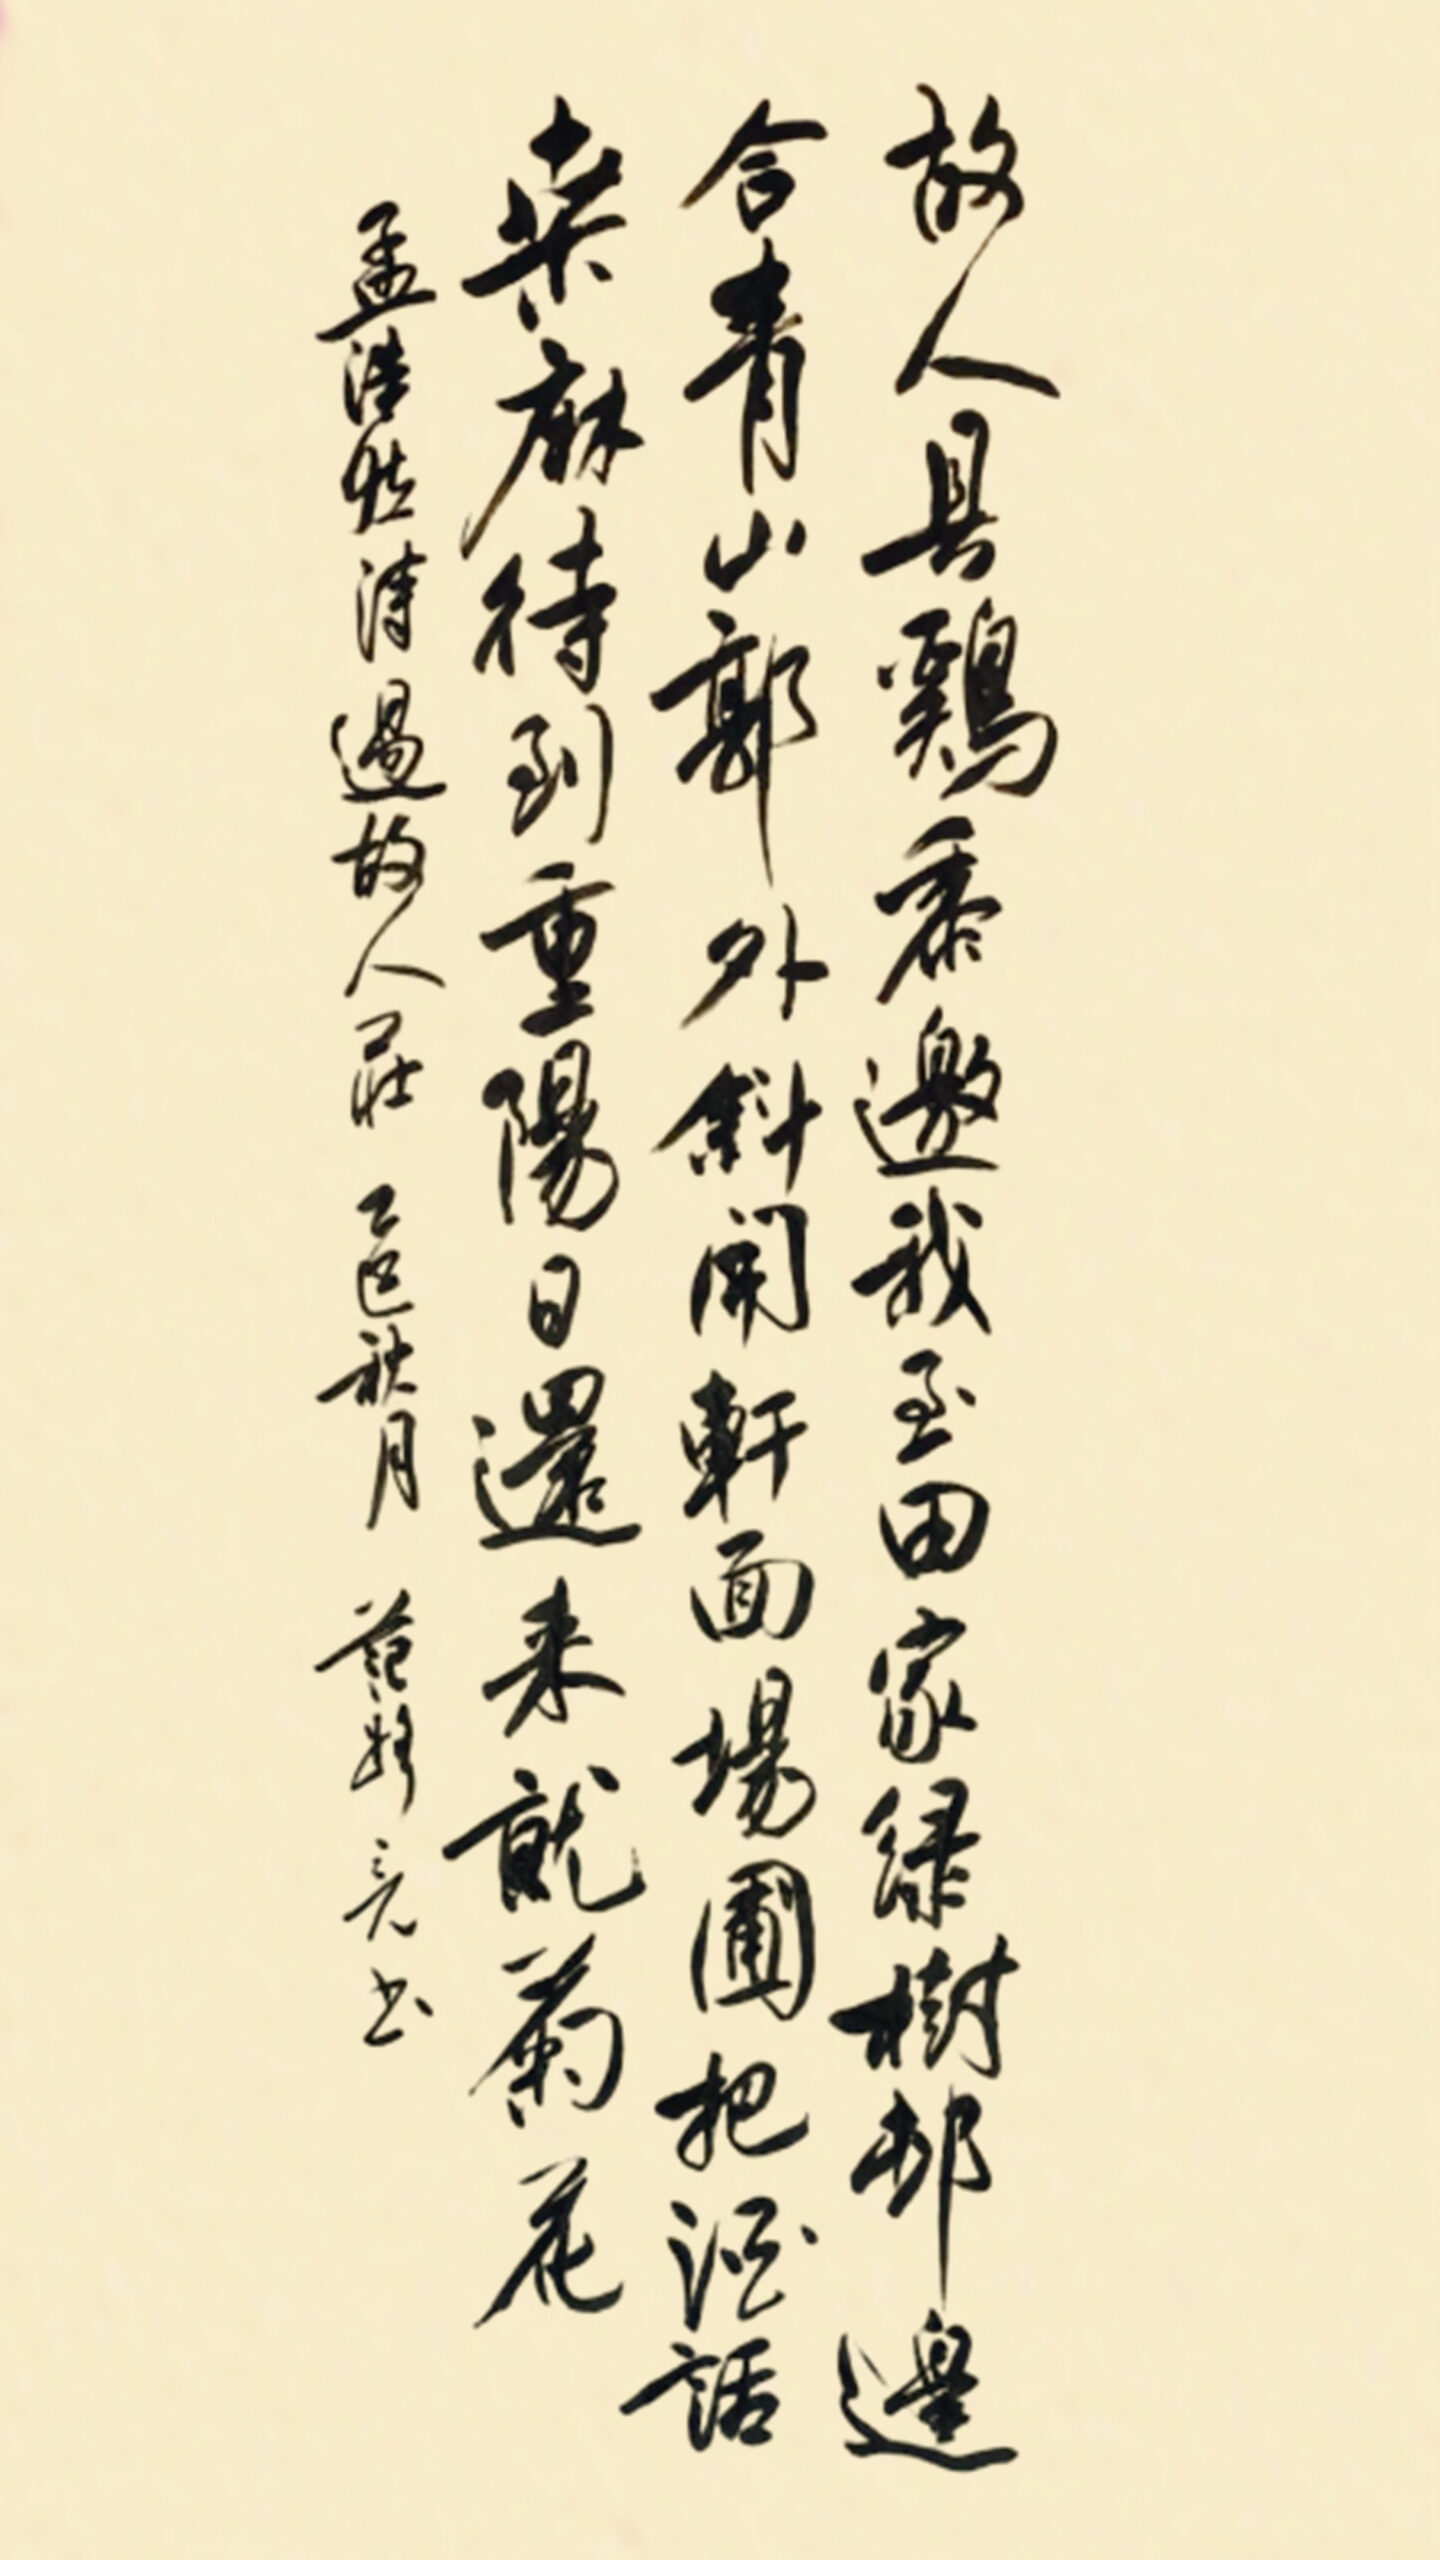 故人具鷄黍邀我至田家緑樹邨邊
合青山郭外斜開軒面場圃把酒話
桑麻待到重陽日還来就菊花
孟浩然诗過故人莊 乙巳秋月 范亮书